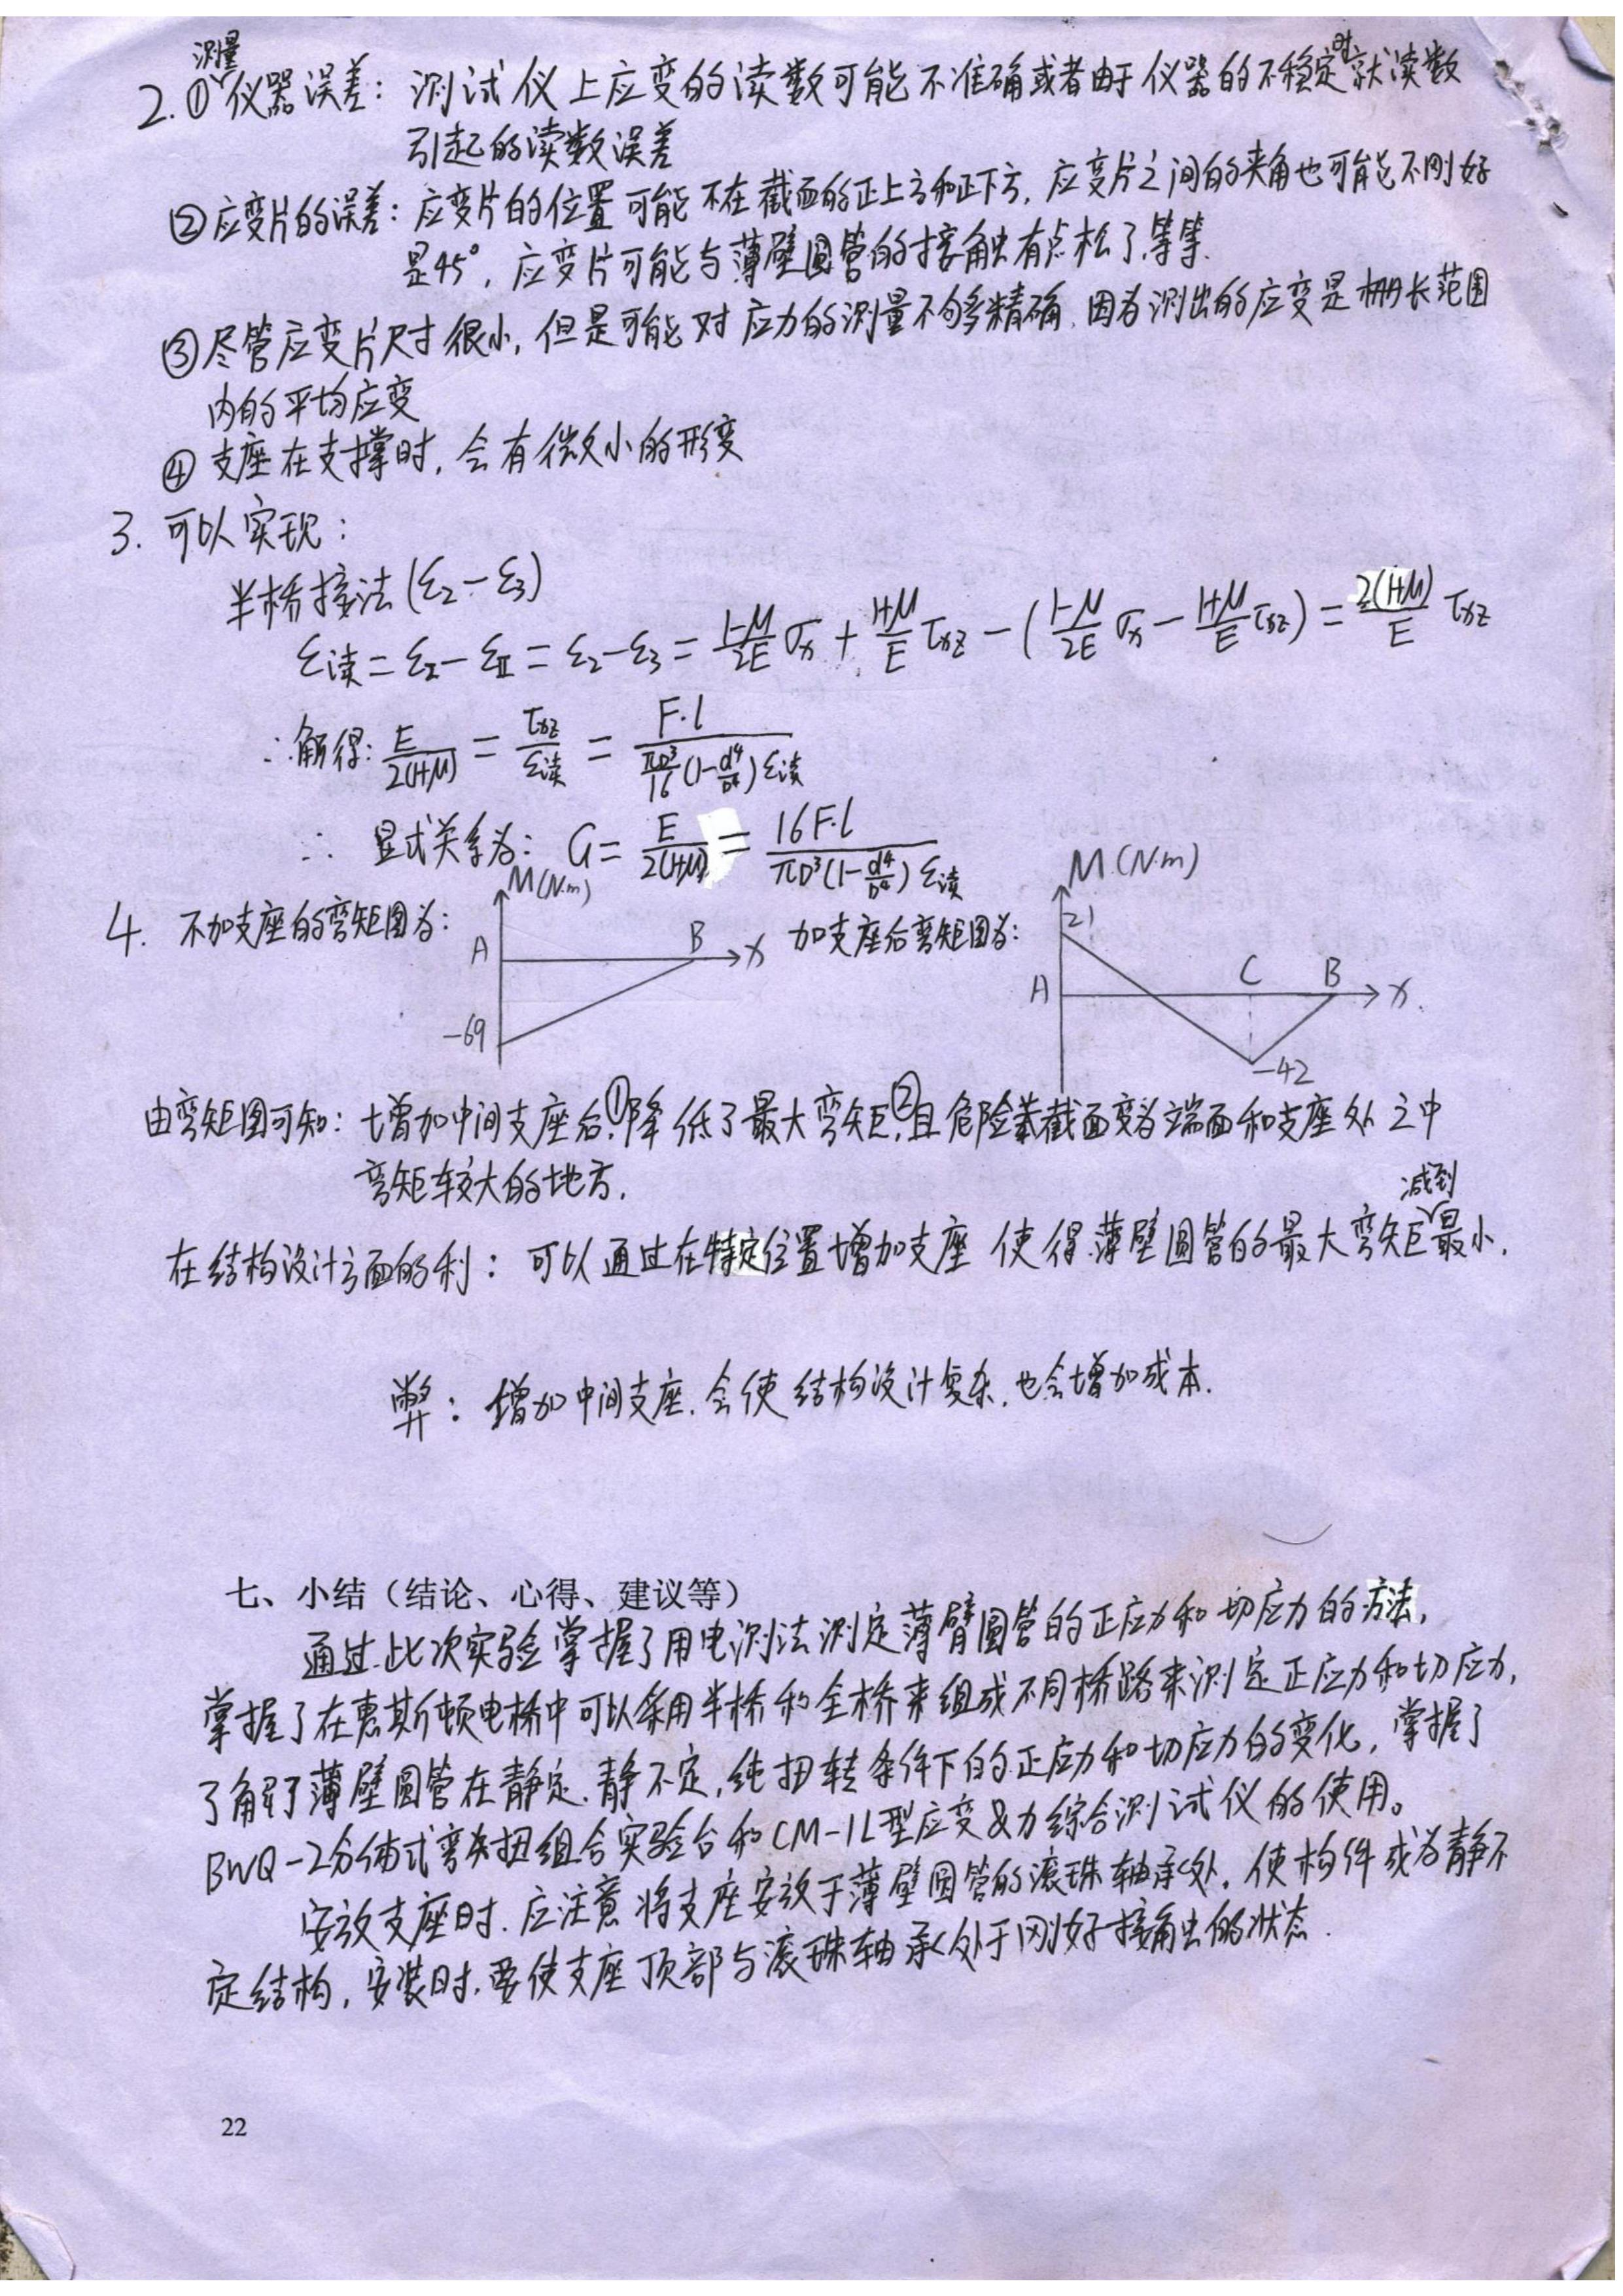 2. ①测量仪器误差: 测试仪上应变的读数可能不准确或者由于仪器的不稳定时就读数
引起的读数误差
②应变片的误差: 应变片的位置可能不在截面的正上方和正下方, 应变片之间的夹角也可能不刚好
是45°, 应变片可能与薄壁圆管的接触有点松了,等等.
③尽管应变片尺寸很小, 但是可能对应力的测量不够精确, 因为测出的应变是栅长范围
内的平均应变
④支座在支撑时, 会有微小的形变
3. 可以实现:
半桥接法 (ε₂-ε₃)
ε读 = ε_I - ε_II = ε₂-ε₃ = (1-μ)/2E σx + (1+μ)/E τxz - ((1-μ)/2E σx - (1+μ)/E τxz) = 2(1+μ)/E τxz
∴解得: E/2(1+μ) = τxz/ε读 = F·l / (πD³/16 (1-d⁴/D⁴) ε读)
∴ 显式关系为: G = E/2(1+μ) = 16F·l / (πD³(1-d⁴/D⁴) ε读)
4. 不加支座的弯矩图为: 加支座后弯矩图为:
M(N·m)
A B x
-69
M(N·m)
21
A C B x
-42
由弯矩图可知: 增加中间支座后,①降低了最大弯矩,②且危险截面变为端面和支座处之中
弯矩较大的地方.
在结构设计方面的利: 可以通过在特定位置增加支座 使得薄壁圆管的最大弯矩减到最小.
弊: 增加中间支座, 会使结构设计复杂, 也会增加成本.
七、小结（结论、心得、建议等）
通过此次实验掌握了用电测法测定薄臂圆管的正应力和切应力的方法,
掌握了在惠斯顿电桥中可以采用半桥和全桥来组成不同桥路来测定正应力和切应力,
了解了薄壁圆管在静定、静不定,纯扭转条件下的正应力和切应力的变化, 掌握了
BWQ-2分体式弯扭组合实验台和CM-1L型应变&力综合测试仪的使用。
安放支座时. 应注意将支座安放于薄壁圆管的滚珠轴承处, 使构件成为静不
定结构, 安装时, 要使支座顶部与滚珠轴承处于刚好接触的状态.
22